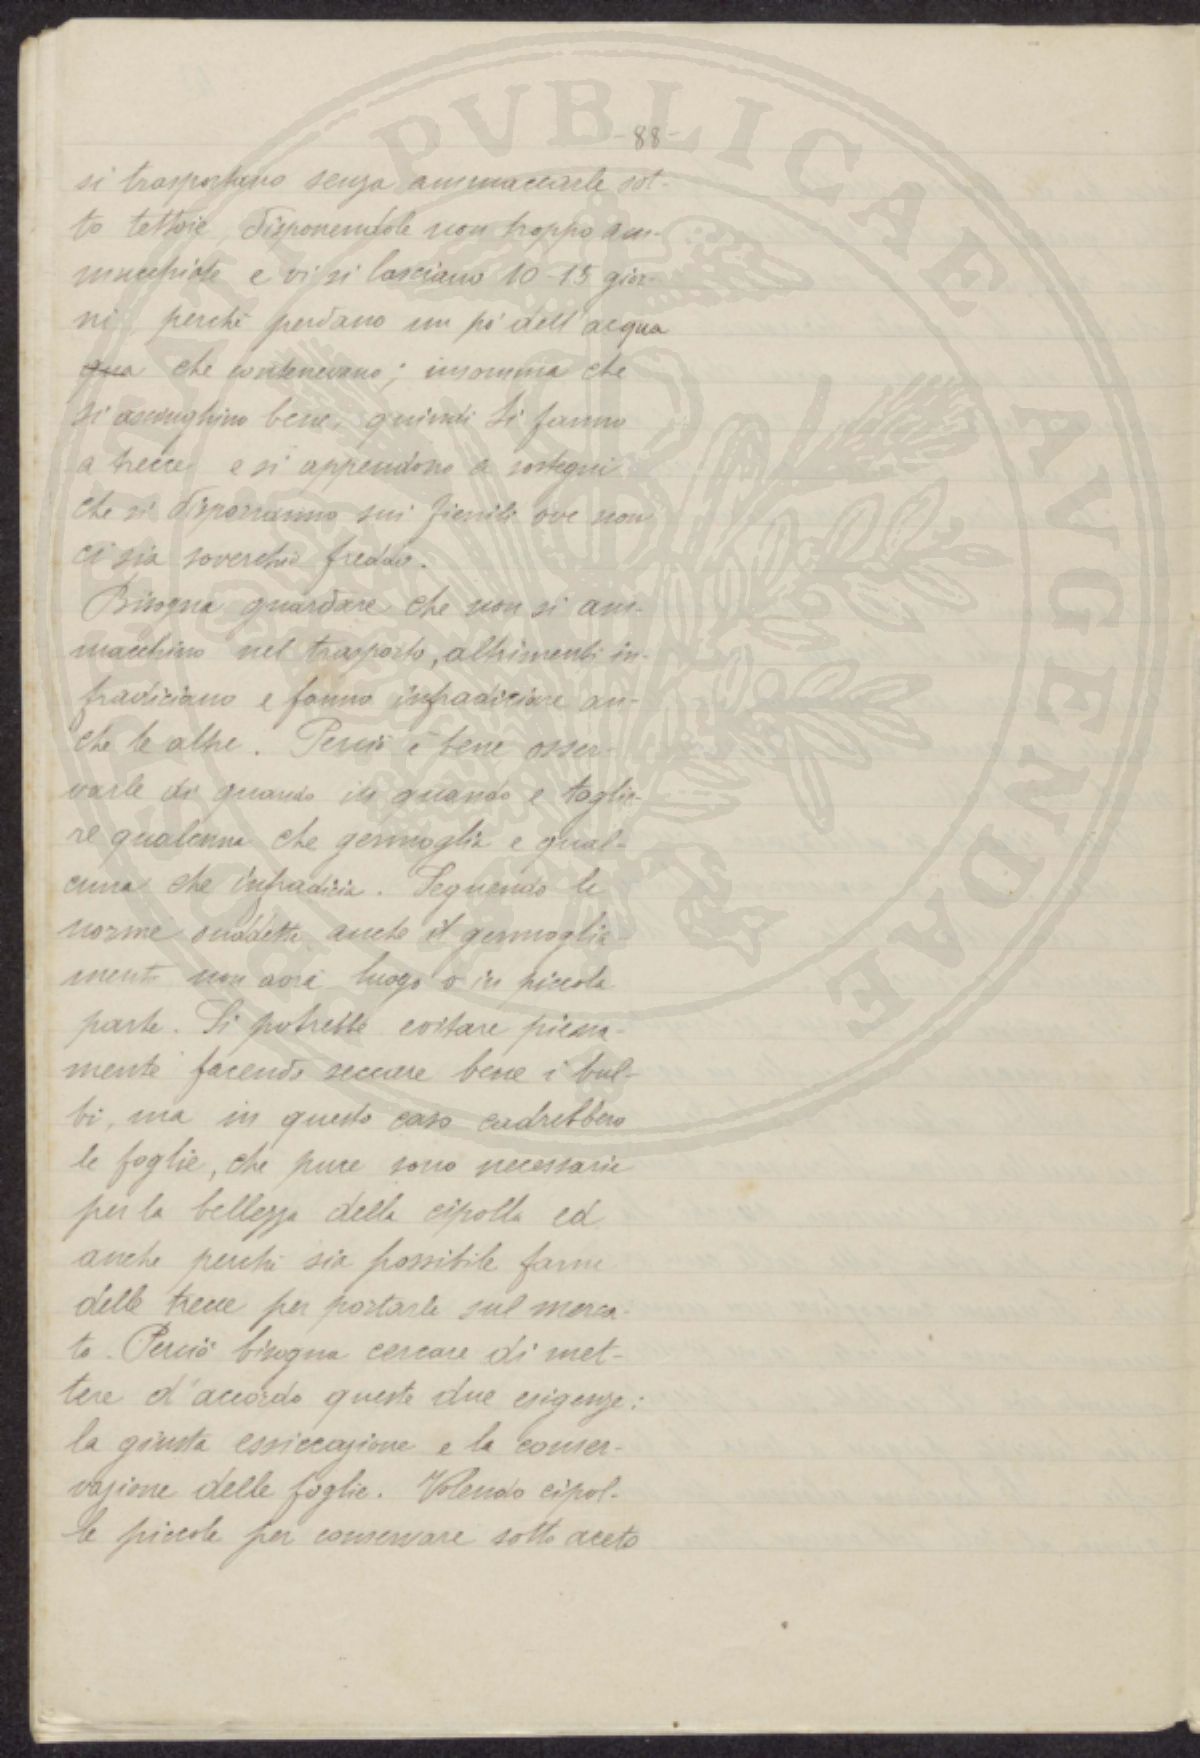 PRIVATI PVBLICAE AVGENDAE
-88-
si trasportano senza ammaccarle sot-
to tettoie, disponendole non troppo am-
mucchiate e vi si lasciano 10-15 gior-
ni, perchè perdano un pó dell'acqua
qua che contenevano; insomma che
si asciughino bene, quindi si fanno
a trecce e si appendono a sostegni
che si disporranno sui fienili ove non
ci sia soverchio freddo.
Bisogna guardare che non si am-
macchino nel trasporto, altrimenti in-
fradiciano e fanno infradiciare an-
che le altre. Perciò è bene osser-
varle di quando in quando e toglie-
re qualcuna che germoglia e qual-
cuna che infradicia. Seguendo le
norme suddette anche il germoglia-
mento non avrà luogo o in piccola
parte. Si potrebbe evitare piena-
mente facendo seccare bene i bul-
bi, ma in questo caso cadrebbero
le foglie, che pure sono necessarie
per la bellezza della cipolla ed
anche perchè sia possibile farne
delle trecce per portarle sul merca-
to. Perciò bisogna cercare di met-
tere d'accordo queste due esigenze:
la giusta essiccazione e la conser-
vazione delle foglie. Volendo cipol-
le piccole per conservare sotto aceto